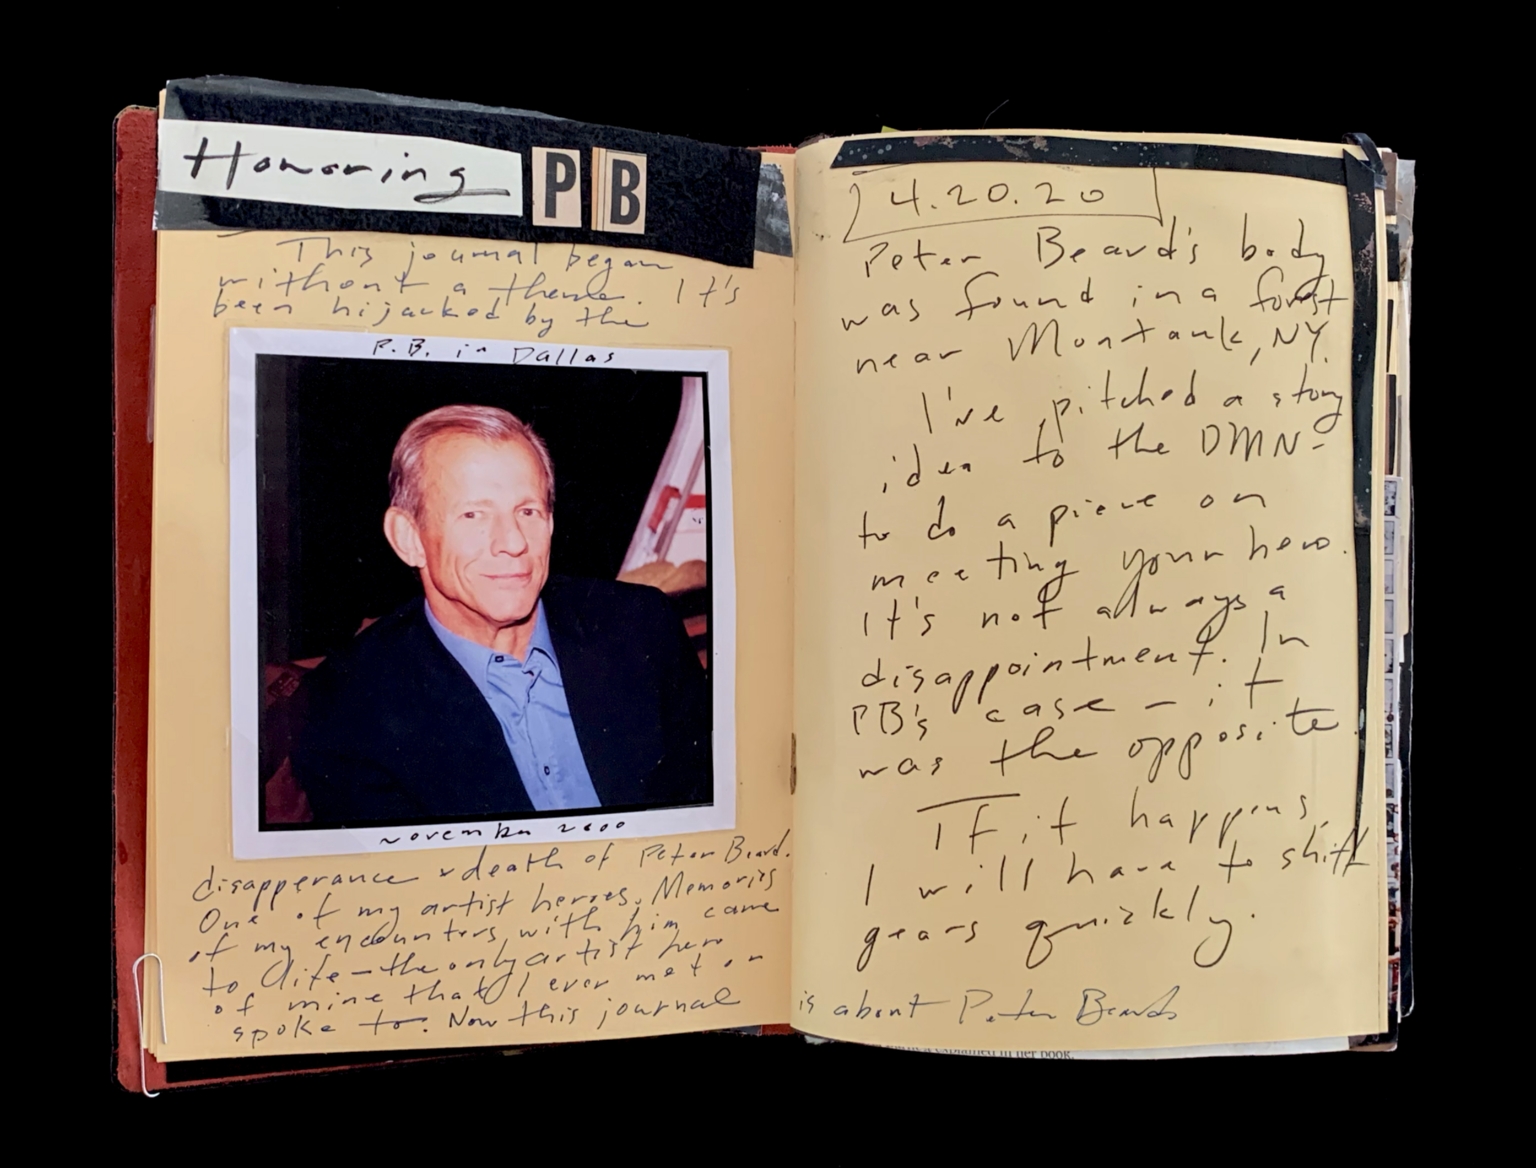 Honoring PB
This journal began
without a theme. It's
been hijacked by the
P.B. in Dallas
november 2000
disapperance & death of Peter Beard.
One of my artist heroes. Memories
of my encounters with him came
to life – the only artist hero
of mine that I ever met or
spoke to. Now this journal
4.20.20
Peter Beard's body
was found in a forest
near Montauk, NY.
I've pitched a story
idea to the DMN –
to do a piece on
meeting your hero.
It's not always a
disappointment. In
PB's case – it
was the opposite
If it happens,
I will have to shift
gears quickly.
is about Peter Beard
explained in her book.